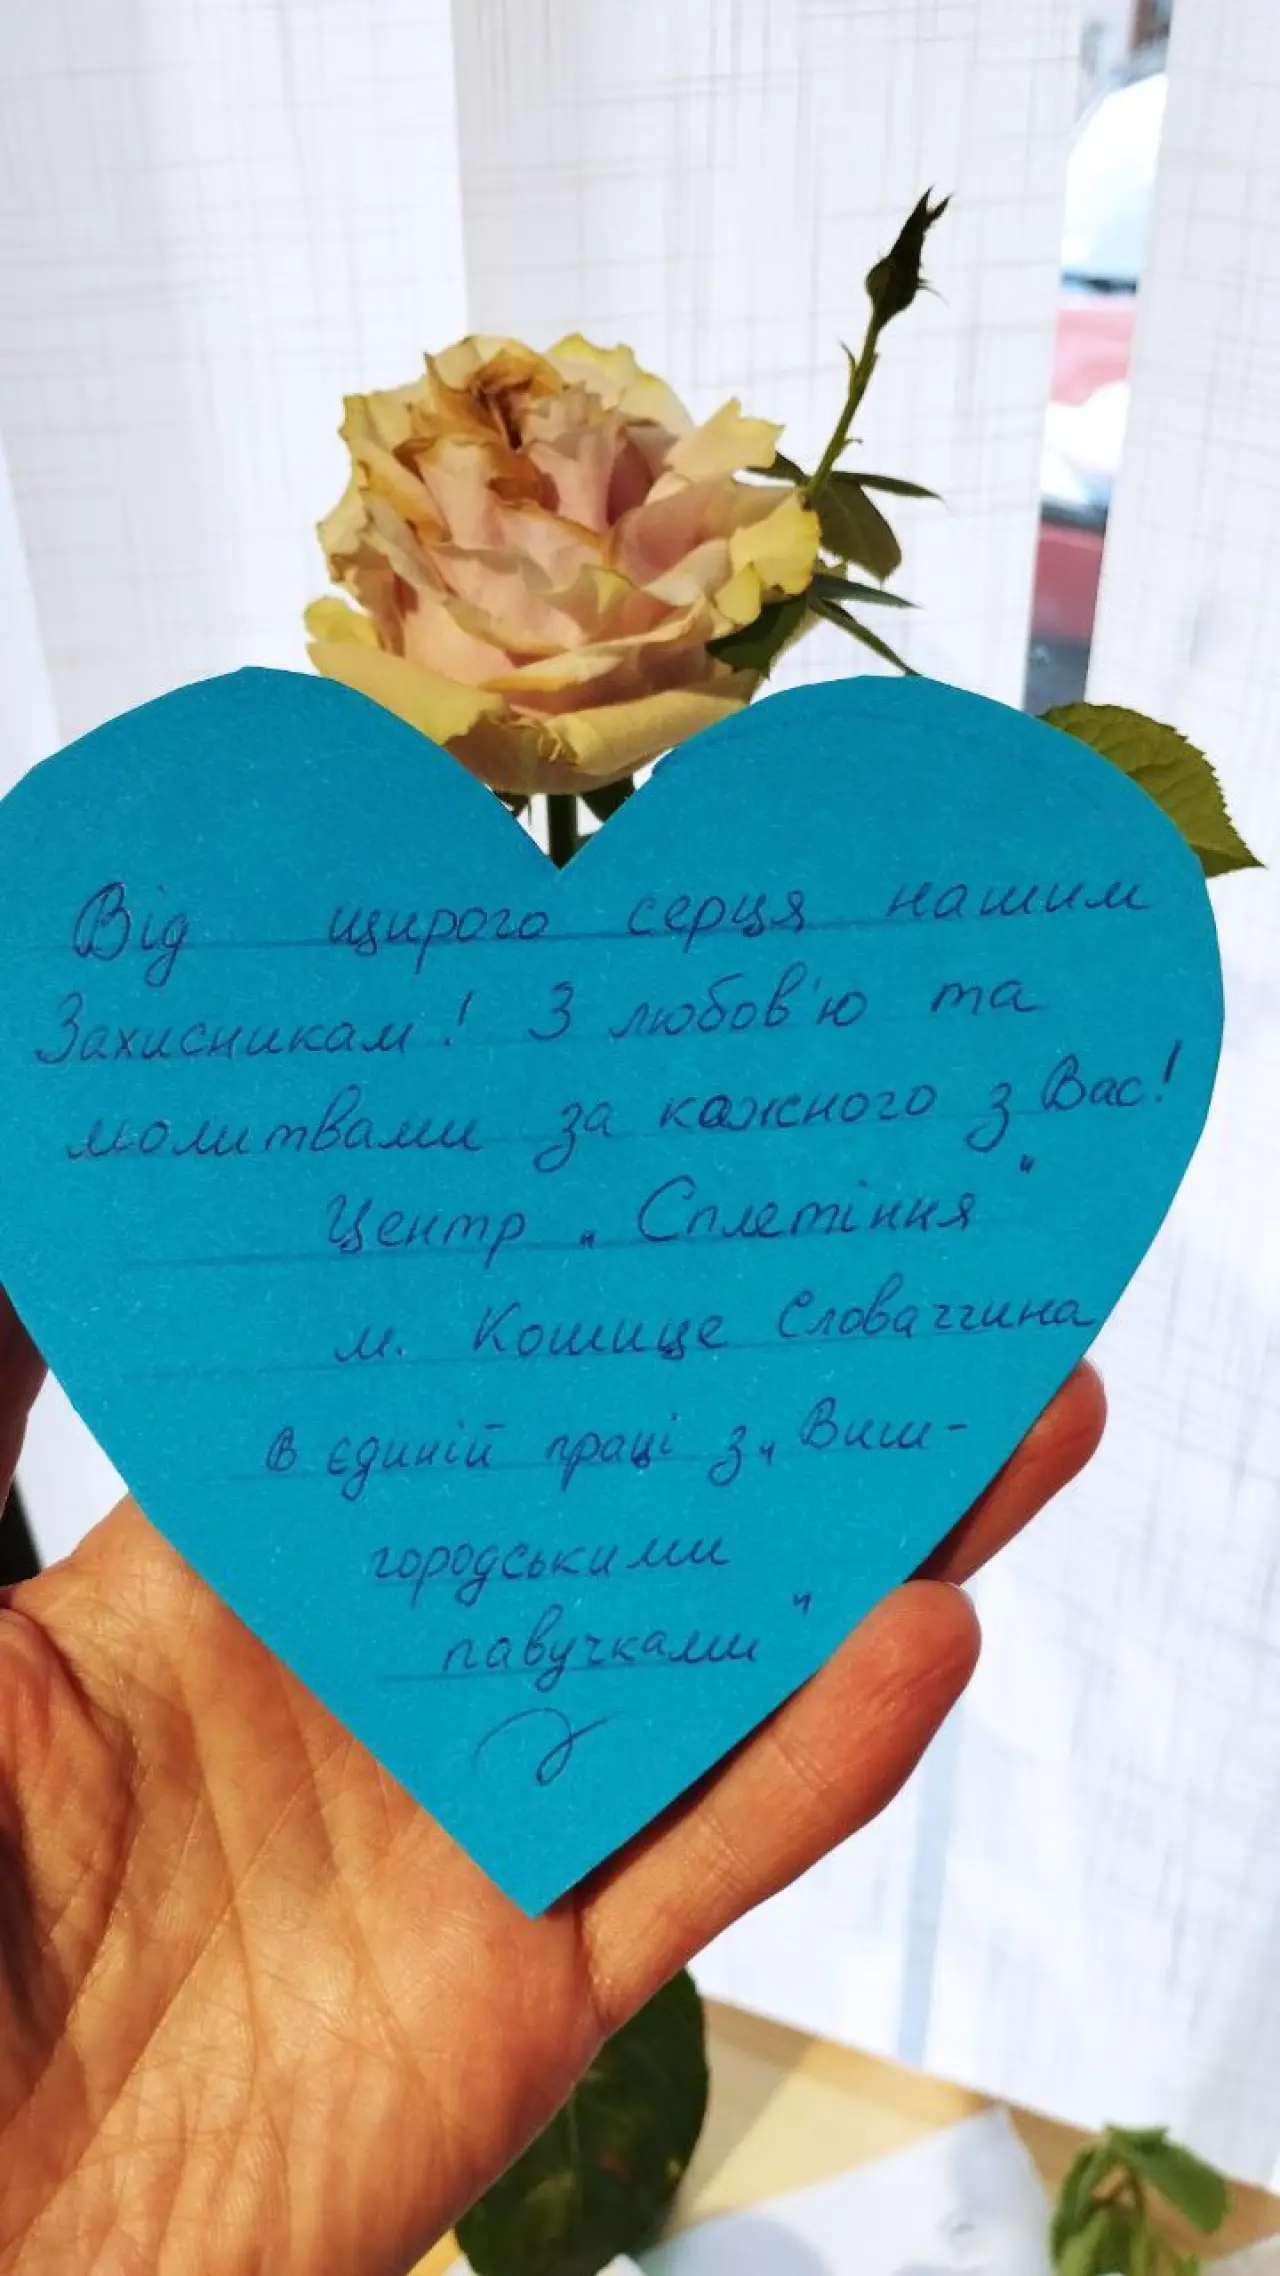 Від щирого серця нашим
Захисникам! З любов'ю та
молитвами за кожного з Вас!
Центр „Сплетіння"
м. Кошице Словаччина
в єдиній праці з „Виш-
городськими
павучками"